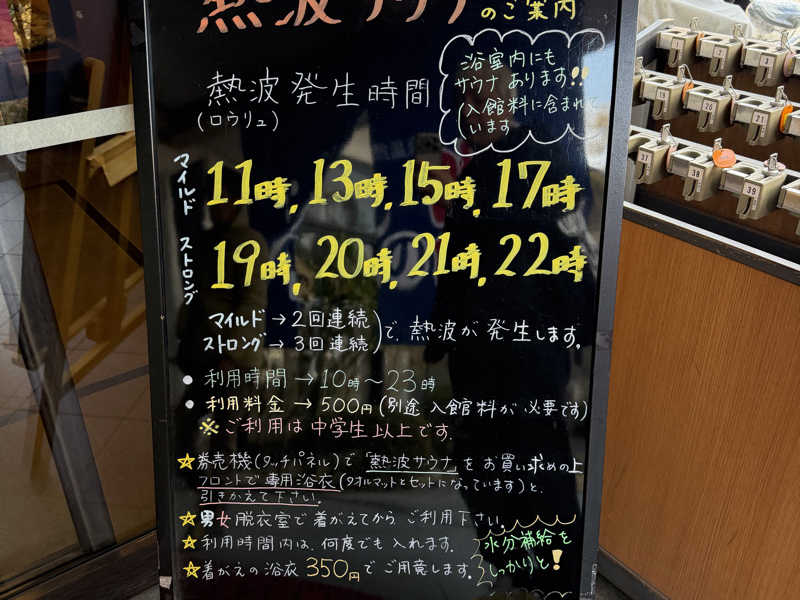 熱波サウナのご案内
浴室内にも
サウナあります!!
(入館料に含まれて
います
熱波発生時間
(ロウリュ)
マイルド 11時, 13時, 15時, 17時
ストロング 19時, 20時, 21時, 22時
マイルド→2回連続
ストロング→3回連続
)で、熱波が発生します。
● 利用時間→10時~23時
● 利用料金→500円(別途入館料が必要です)
※ご利用は中学生以上です。
☆券売機(タッチパネル)で「熱波サウナ」をお買い求めの上
フロントで専用浴衣(タオルマットとセットになっています)と、
引きかえて下さい。
☆男女脱衣室で着がえてからご利用下さい。
☆利用時間内は、何度でも入れます。
☆着がえの浴衣350円でご用意します。
水分補給を
しっかりと!
1
2
3
19
20
21
37
38
39